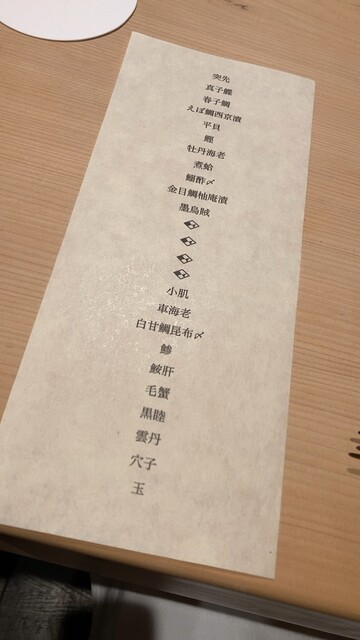 突先
真子鰈
春子鯛
えぼ鯛西京漬
平貝
鰹
牡丹海老
煮蛤
鰯酢〆
金目鯛柚庵漬
墨烏賊
小肌
車海老
白甘鯛昆布〆
鯵
鮟肝
毛蟹
黒睦
雲丹
穴子
玉